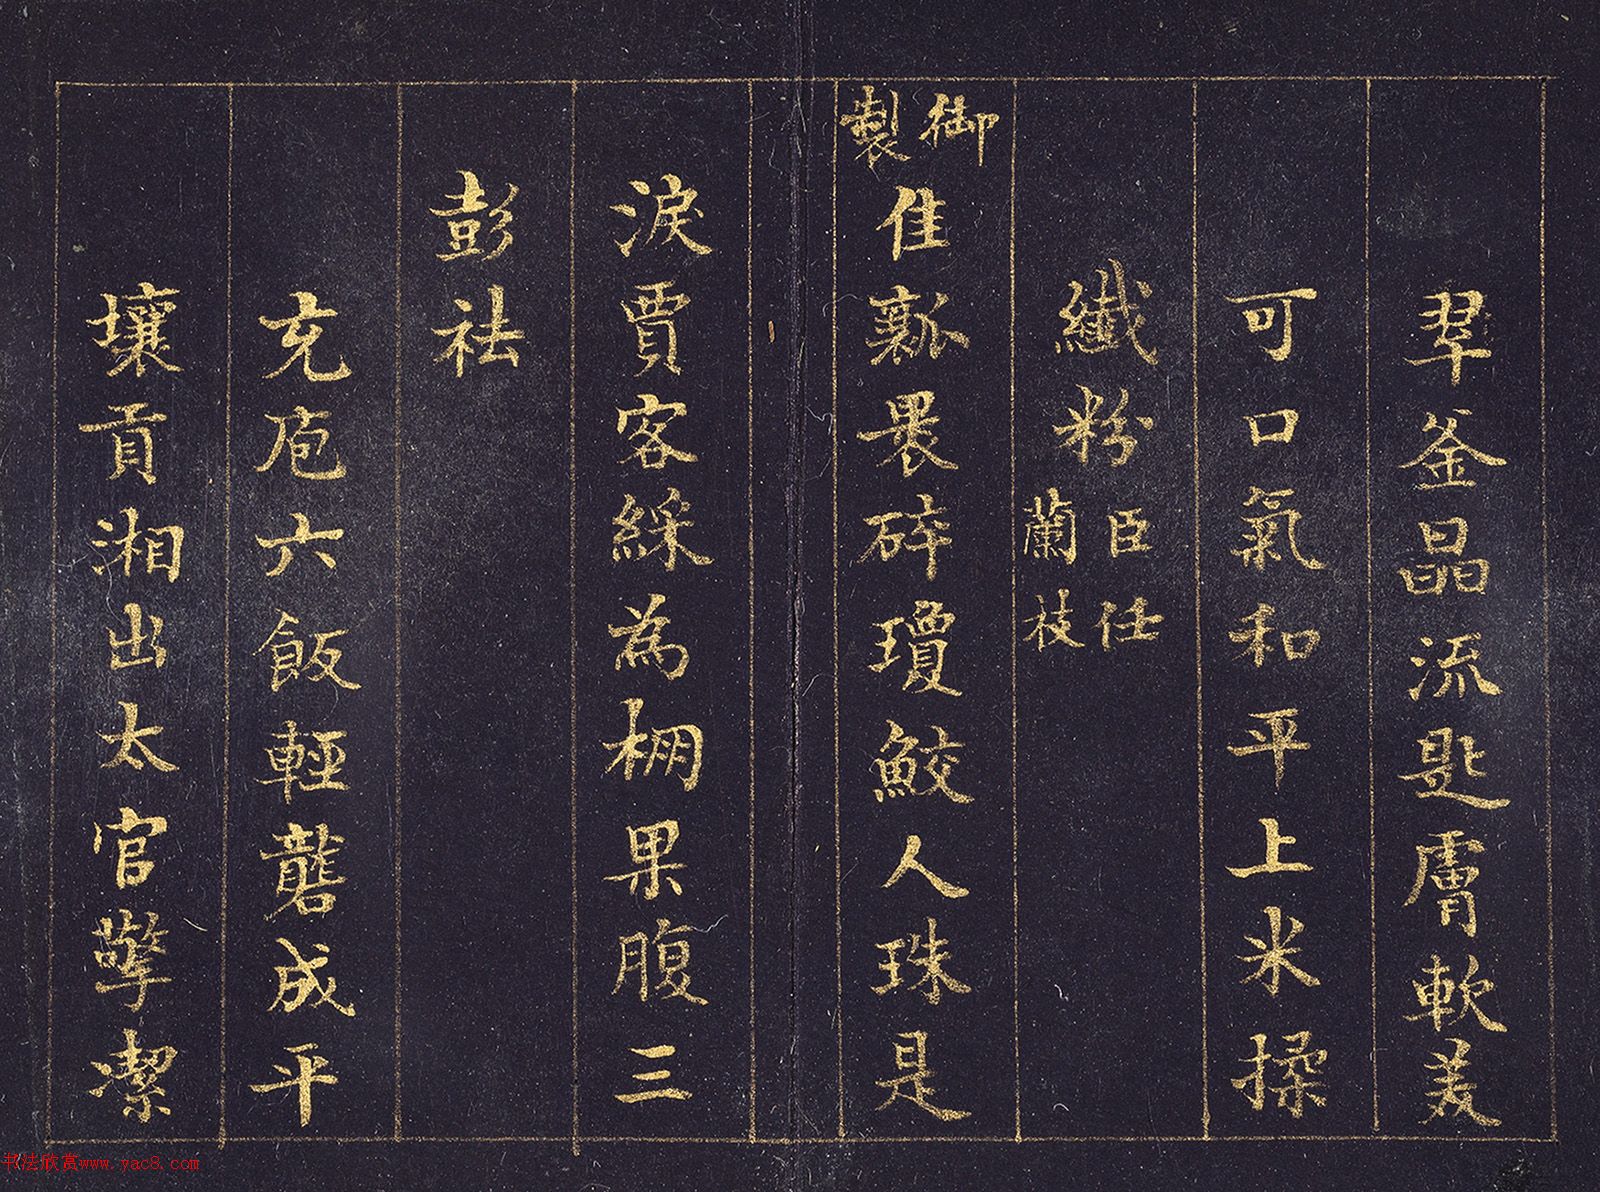 翠釜晶流匙膚軟美
可口氣和平上米揉
纖粉臣任蘭枝
御製隹瓤褁碎瓊鮫人珠是
淚賈客綵為棚果腹三
彭祛
充庖六飯輕礱成平
壤貢湘出太官擎潔
书法欣赏www.yac8.com